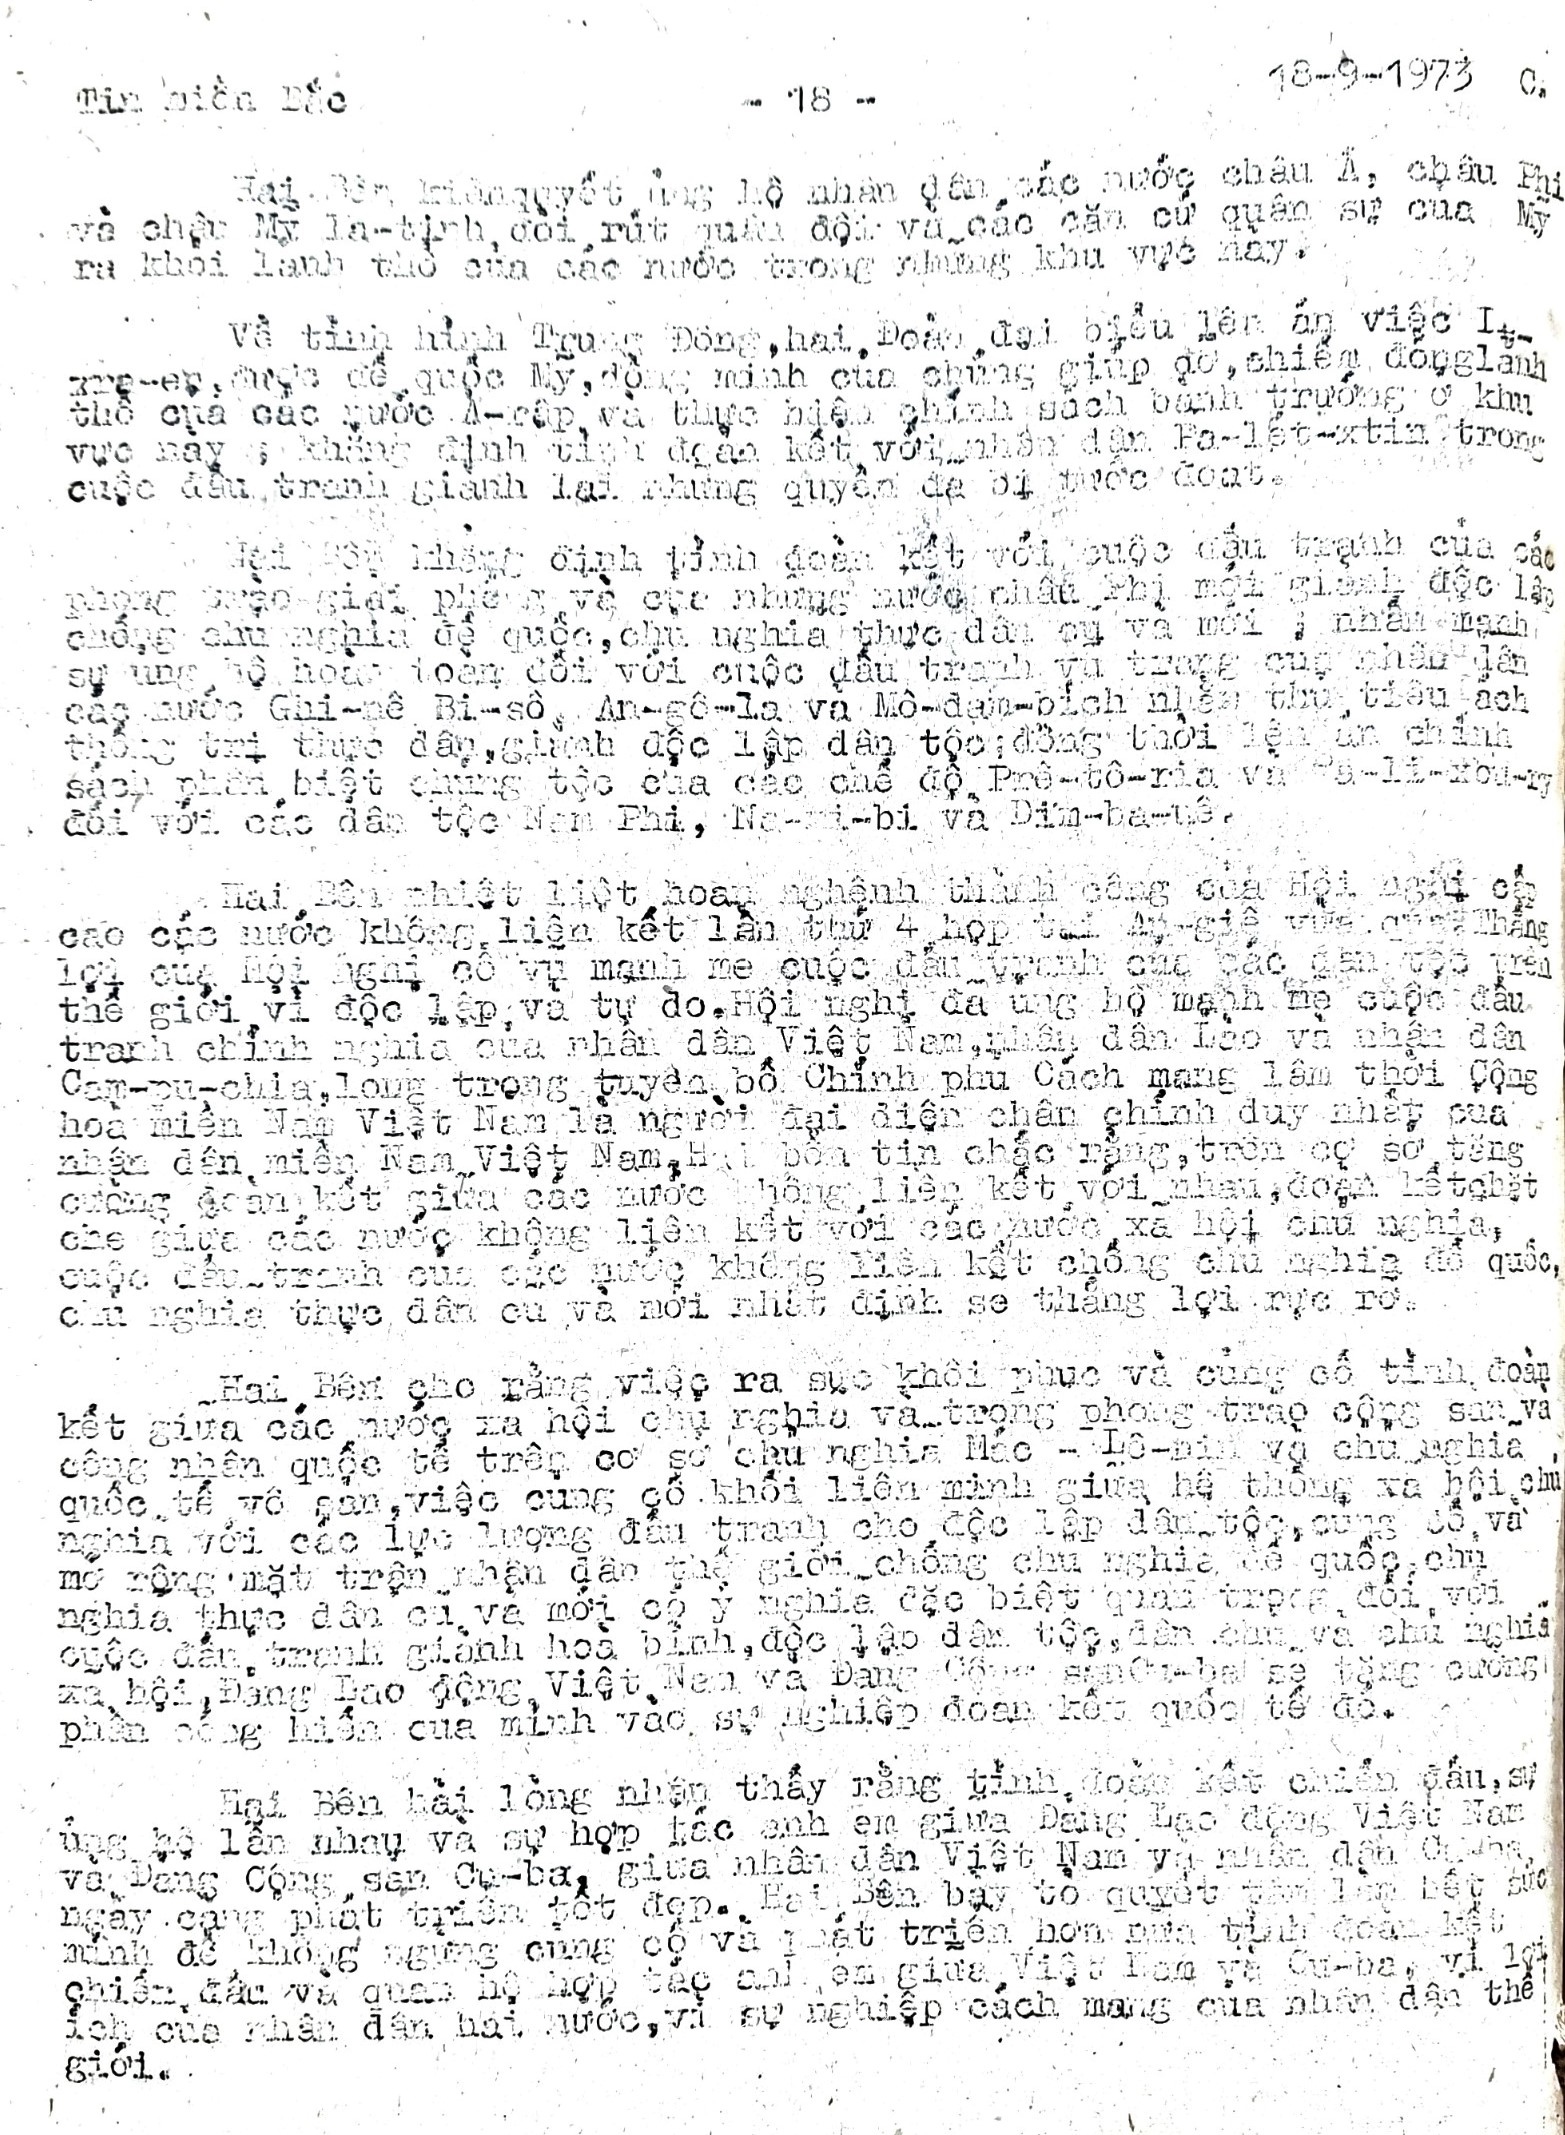 Tin miền Bắc - 18 - 18-9-1973 C.
Hai Bên kiên quyết ủng hộ nhân dân các nước châu Á, châu Phi
và châu Mỹ la-tinh đòi rút quân đội và các căn cứ quân sự của Mỹ
ra khỏi lãnh thổ của các nước trong những khu vực này.
Về tình hình Trung Đông, hai Đoàn đại biểu lên án việc It-
xra-en, được đế quốc Mỹ, đồng minh của chúng giúp đỡ, chiếm đóng lãnh
thổ của các nước A-rập và thực hiện chính sách bành trướng ở khu
vực này ; khẳng định tình đoàn kết với nhân dân Pa-lét-xtin trong
cuộc đấu tranh giành lại những quyền đã bị tước đoạt.
Hai Bên khẳng định tình đoàn kết với cuộc đấu tranh của các
phong trào giải phóng và của những nước châu Phi mới giành độc lập
chống chủ nghĩa đế quốc, chủ nghĩa thực dân cũ và mới ; nhấn mạnh
sự ủng hộ hoàn toàn đối với cuộc đấu tranh vũ trang của nhân dân
các nước Ghi-nê Bi-sô, An-gô-la và Mô-dăm-bích nhằm thủ tiêu ách
thống trị thực dân, giành độc lập dân tộc; đồng thời lên án chính
sách phân biệt chủng tộc của các chế độ Prê-tô-ria và Xa-li-xbu-ry
đối với các dân tộc Nam Phi, Na-mi-bi và Dim-ba-uê.
Hai Bên nhiệt liệt hoan nghênh thành công của Hội nghị cấp
cao các nước không liên kết lần thứ 4 họp tại An-giê vừa qua. Thắng
lợi của Hội nghị cổ vũ mạnh mẽ cuộc đấu tranh của các dân tộc trên
thế giới vì độc lập và tự do. Hội nghị đã ủng hộ mạnh mẽ cuộc đấu
tranh chính nghĩa của nhân dân Việt Nam, nhân dân Lào và nhân dân
Cam-pu-chia, long trọng tuyên bố Chính phủ Cách mạng lâm thời Cộng
hòa miền Nam Việt Nam là người đại diện chân chính duy nhất của
nhân dân miền Nam Việt Nam, Hai bên tin chắc rằng, trên cơ sở tăng
cường đoàn kết giữa các nước không liên kết với nhau, đoàn kết chặt
chẽ giữa các nước không liên kết với các nước xã hội chủ nghĩa,
cuộc đấu tranh của các nước không liên kết chống chủ nghĩa đế quốc,
chủ nghĩa thực dân cũ và mới nhất định sẽ thắng lợi rực rỡ.
Hai Bên cho rằng việc ra sức khôi phục và củng cố tình đoàn
kết giữa các nước xã hội chủ nghĩa và trong phong trào cộng sản và
công nhân quốc tế trên cơ sở chủ nghĩa Mác - Lê-nin và chủ nghĩa
quốc tế vô sản, việc củng cố khối liên minh giữa hệ thống xã hội chủ
nghĩa với các lực lượng đấu tranh cho độc lập dân tộc, củng cố và
mở rộng mặt trận nhân dân thế giới chống chủ nghĩa đế quốc, chủ
nghĩa thực dân cũ và mới có ý nghĩa đặc biệt quan trọng đối với
cuộc đấu tranh giành hòa bình, độc lập dân tộc, dân chủ và chủ nghĩa
xã hội, Đảng Lao động Việt Nam và Đảng Cộng sản Cu-ba sẽ tăng cường
phần cống hiến của mình vào sự nghiệp đoàn kết quốc tế đó.
Hai Bên hài lòng nhận thấy rằng tình đoàn kết chiến đấu, sự
ủng hộ lẫn nhau và sự hợp tác anh em giữa Đảng Lao động Việt Nam
và Đảng Cộng sản Cu-ba, giữa nhân dân Việt Nam và nhân dân Cu-ba,
ngày càng phát triển tốt đẹp. Hai Bên bày tỏ quyết tâm làm hết sức
mình để không ngừng củng cố và phát triển hơn nữa tình đoàn kết
chiến đấu và quan hệ hợp tác anh em giữa Việt Nam và Cu-ba, vì lợi
ích của nhân dân hai nước, vì sự nghiệp cách mạng của nhân dân thế
giới.